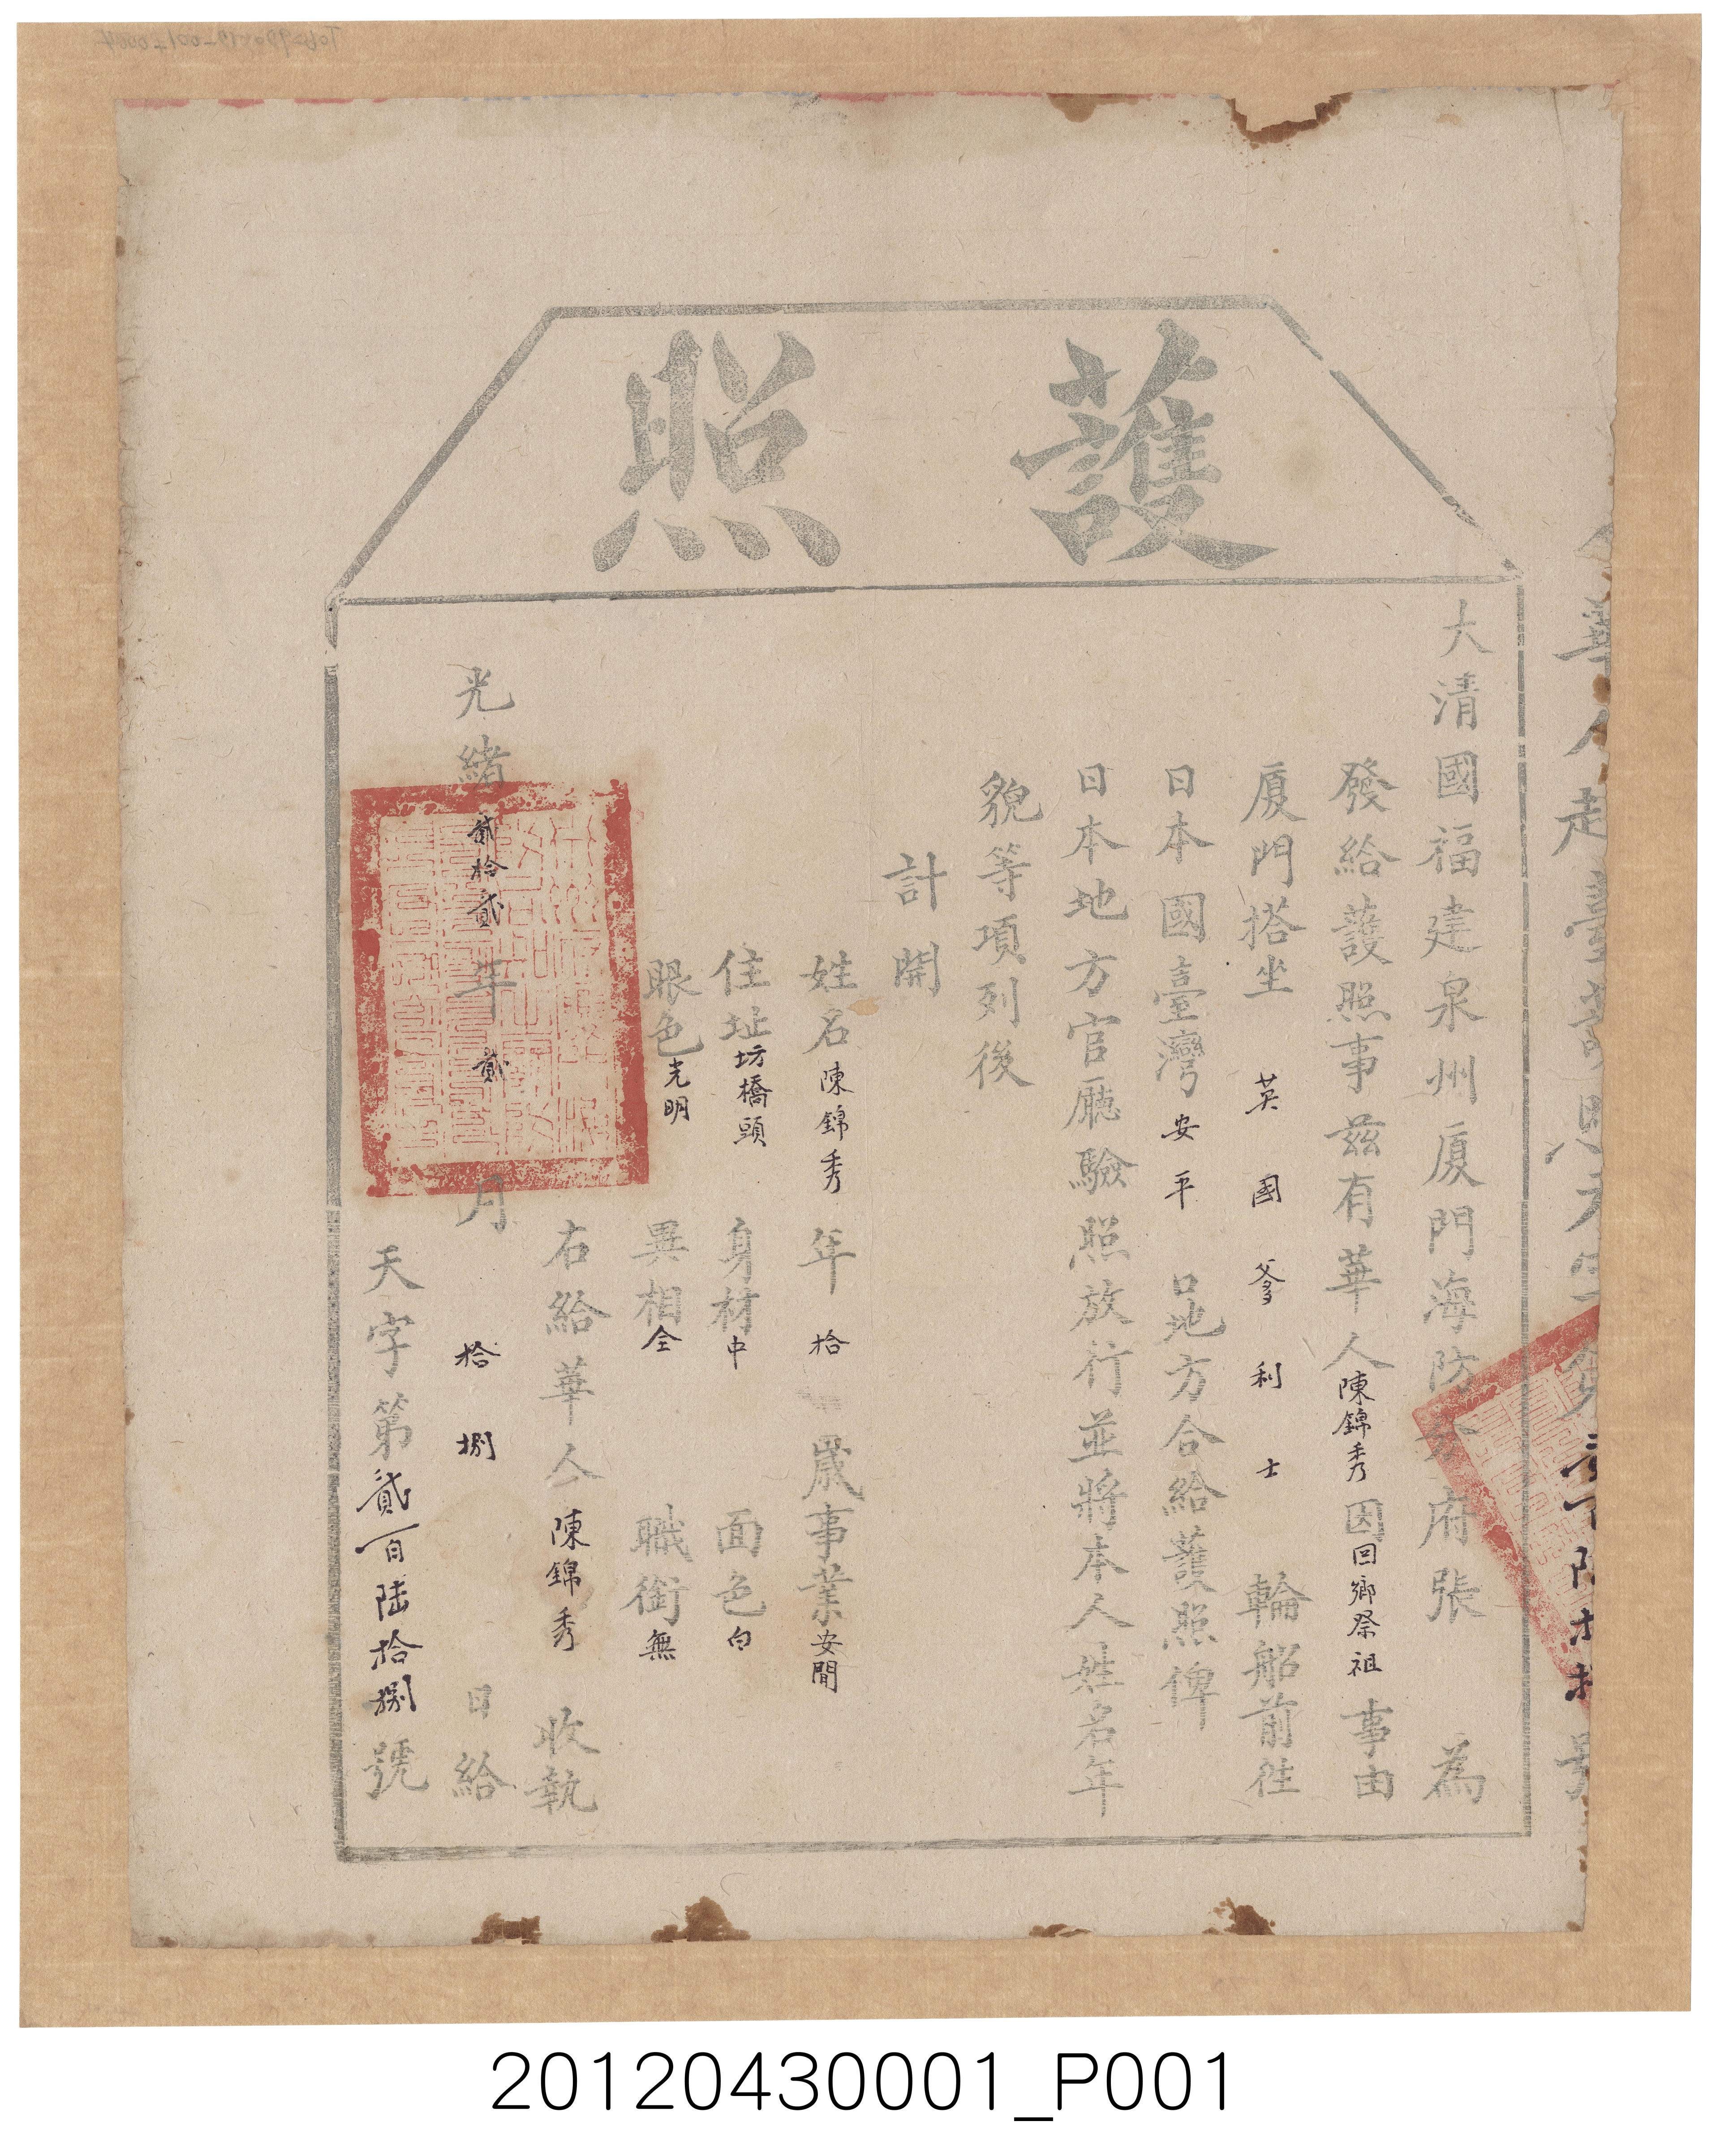 護照
大清國福建泉州厦門海防分府張 為
發給護照事兹有華人陳錦秀因回鄉祭祖事由
厦門搭坐英國爹利士輪船前往
日本國臺灣安平口地方合給護照俾
日本地方官廳驗照放行並將本人姓名年
貌等項列後
計開
姓名陳錦秀 年拾 歲事業安閒
住址坊橋頭 身材中 面色白
眼色光明 異相仝 職銜無
右給華人陳錦秀 收執
光緒貳拾貳年貳月拾捌日給
天字第貳百陸拾捌號
20120430001_P001